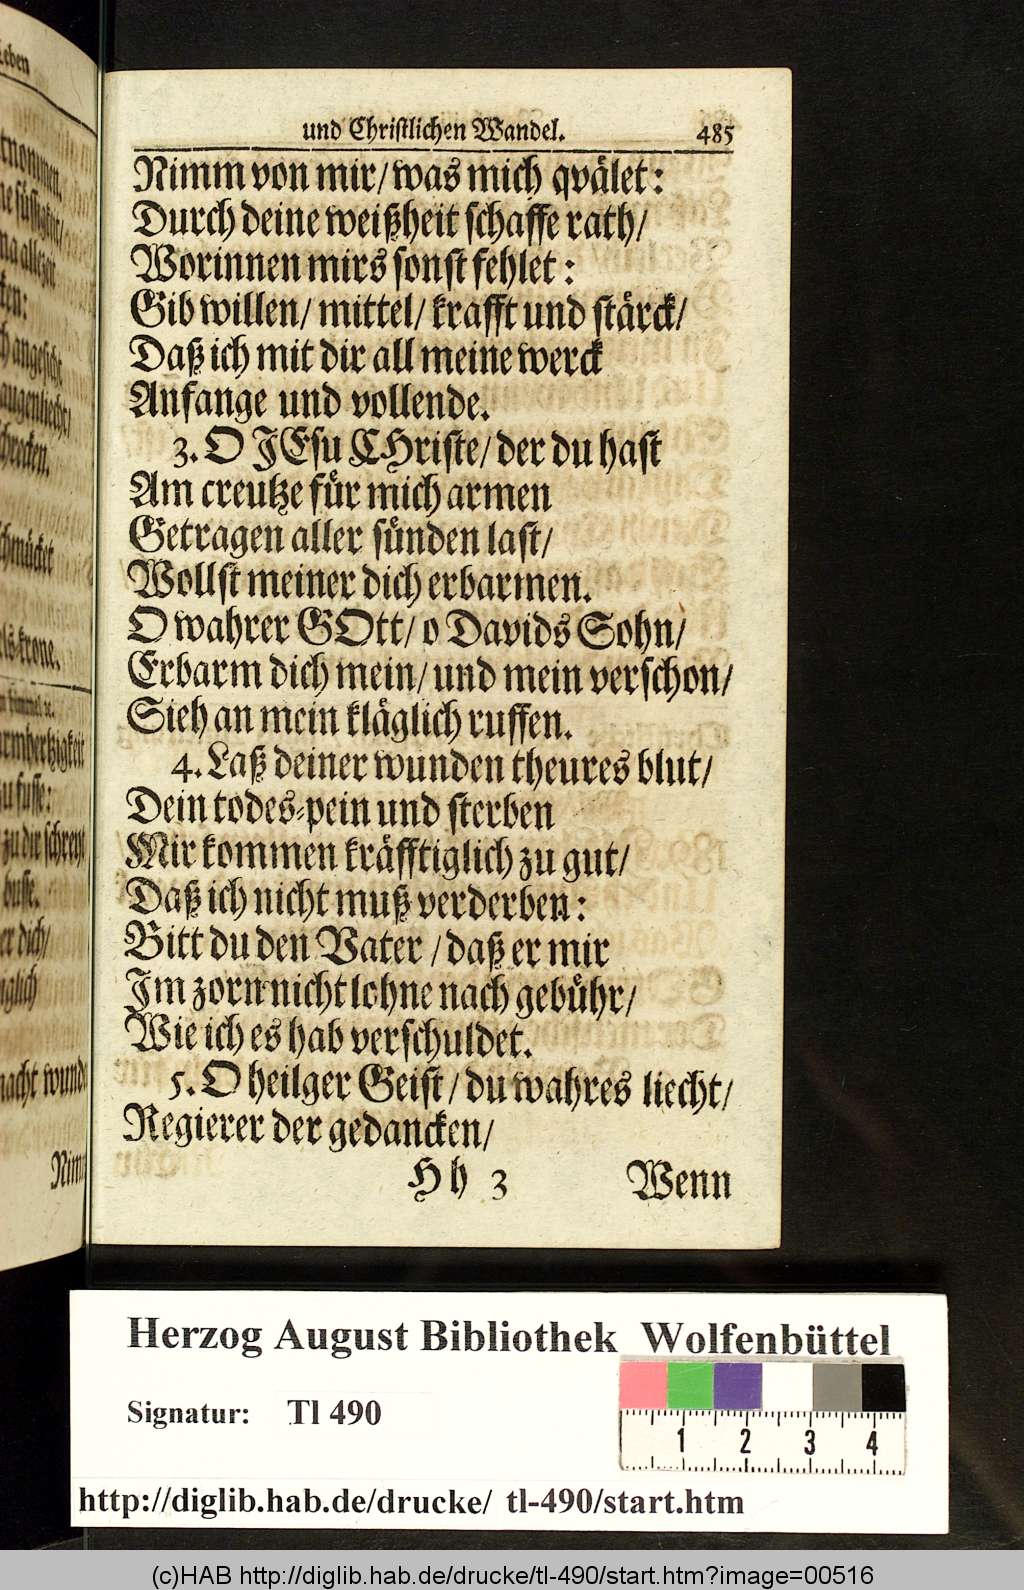 und Christlichen Wandel. 485
Nimm von mir/ was mich qvälet:
Durch deine weißheit schaffe rath/
Worinnen mirs sonst fehlet:
Gib willen/ mittel/ krafft und stärck/
Daß ich mit dir all meine werck
Anfange und vollende.
3. O JEsu CHriste/ der du hast
Am creutze für mich armen
Getragen aller sünden last/
Wollst meiner dich erbarmen.
O wahrer GOtt/ o Davids Sohn/
Erbarm dich mein/ und mein verschon/
Sieh an mein kläglich ruffen.
4. Laß deiner wunden theures blut/
Dein todes-pein und sterben
Mir kommen kräfftiglich zu gut/
Daß ich nicht muß verderben:
Bitt du den Vater / daß er mir
Im zorn nicht lohne nach gebühr/
Wie ich es hab verschuldet.
5. O heilger Geist / du wahres liecht/
Regierer der gedancken/
Hh 3 Wenn
Herzog August Bibliothek Wolfenbüttel
Signatur: Tl 490
1 2 3 4
http://diglib.hab.de/drucke/ tl-490/start.htm
(c)HAB http://diglib.hab.de/drucke/tl-490/start.htm?image=00516